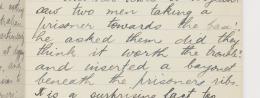 saw two men taking a
prisoner towards the
he asked them did they
think it worth the trouble
and inserted a bayonet
beneath the prisoners ribs.
It is a surprising fact too